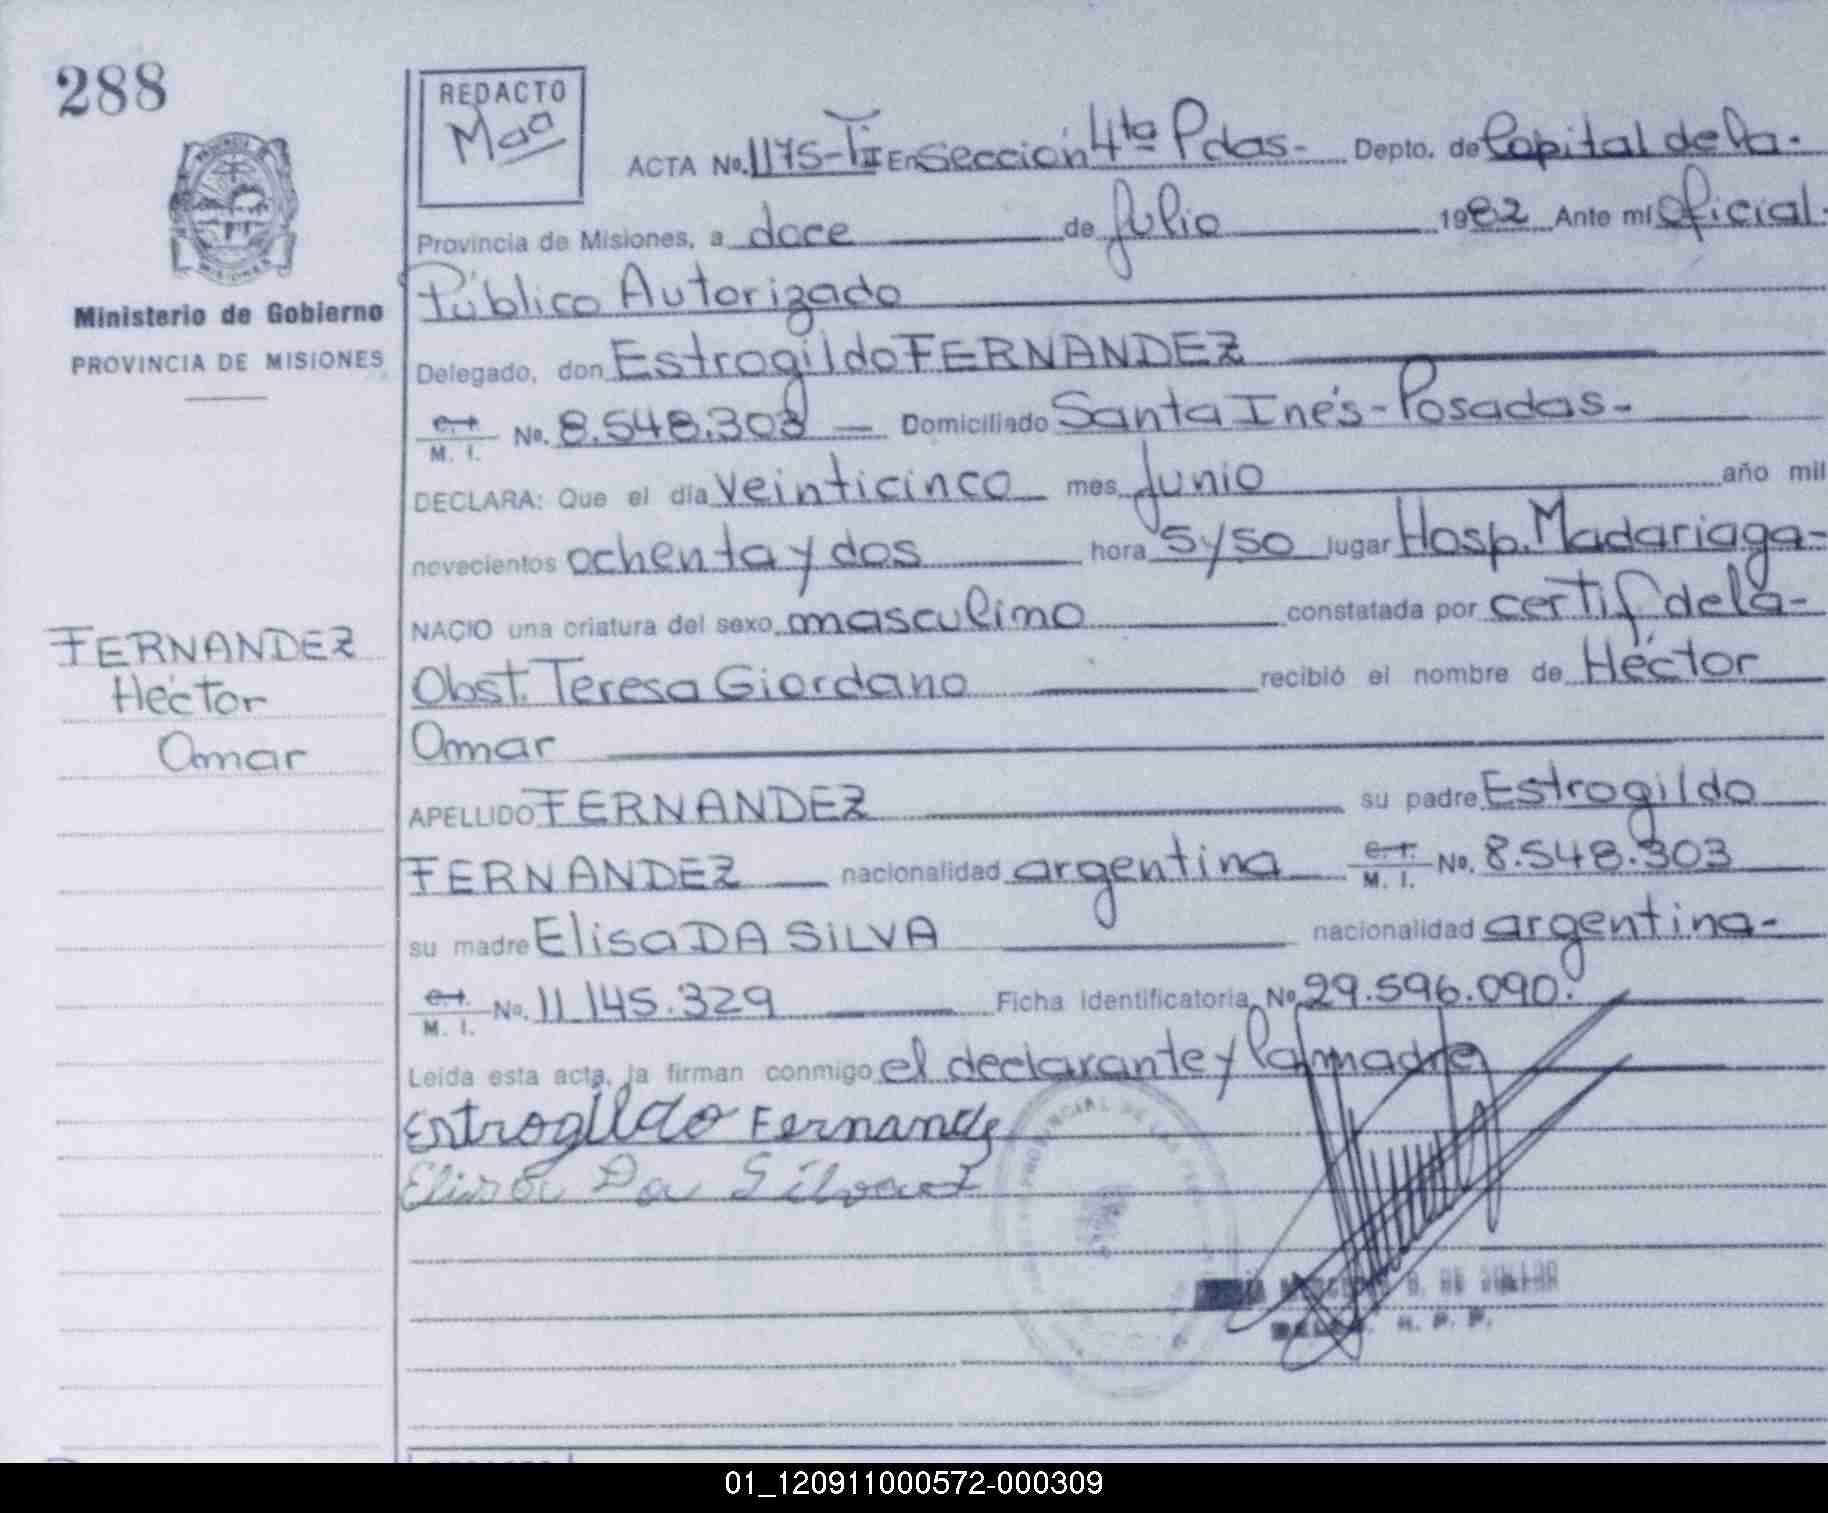 288
REDACTO
Maa
ACTA No. 1175-TII En Sección 4ta Pdas.- Depto. de Capital de la-
Provincia de Misiones, a doce de Julio 1982 Ante mi Oficial-
Público Autorizado
Ministerio de Gobierno
PROVINCIA DE MISIONES
Delegado, don Estrogildo FERNANDEZ
C.I. M. I. No. 8.548.303 Domiciliado Santa Inés-Posadas-
DECLARA: Que el día veinticinco mes Junio año mil
novecientos ochenta y dos hora 5 y 50 lugar Hosp. Madariaga-
NACIO una criatura del sexo masculino constatada por certif de la-
Obst. Teresa Giordano recibió el nombre de Héctor
Omar
FERNANDEZ
Héctor
Omar
APELLIDO FERNANDEZ su padre Estrogildo
FERNANDEZ nacionalidad argentina C.I. M. I. No. 8.548.303
su madre Elisa DA SILVA nacionalidad argentina-
C.I. M. I. No. 11.145.329 Ficha identificatoria No 29.596.090.
Leída esta acta, la firman conmigo el declarante y la madre
Estrogildo Fernandz
Elisa Da Silva
01_120911000572-000309